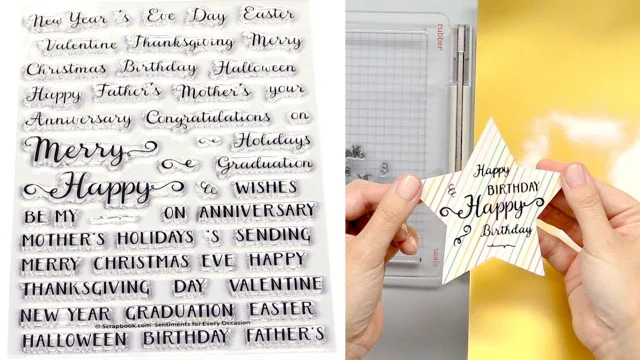 New Year 's Eve Day Easter
Valentine Thanksgiving Merry
Christmas Birthday Halloween
Happy Father's Mother's your
Anniversary Congratulations on
Merry Holidays
Graduation
Happy & WISHES
BE MY ON ANNIVERSARY
MOTHER'S HOLIDAYS 'S SENDING
MERRY CHRISTMAS EVE HAPPY
THANKSGIVING DAY VALENTINE
NEW YEAR GRADUATION EASTER
© Scrapbook.com Sentiments for Every Occasion
HALLOWEEN BIRTHDAY FATHER'S
rubber
clear
Happy
& BIRTHDAY
Happy
Birthday